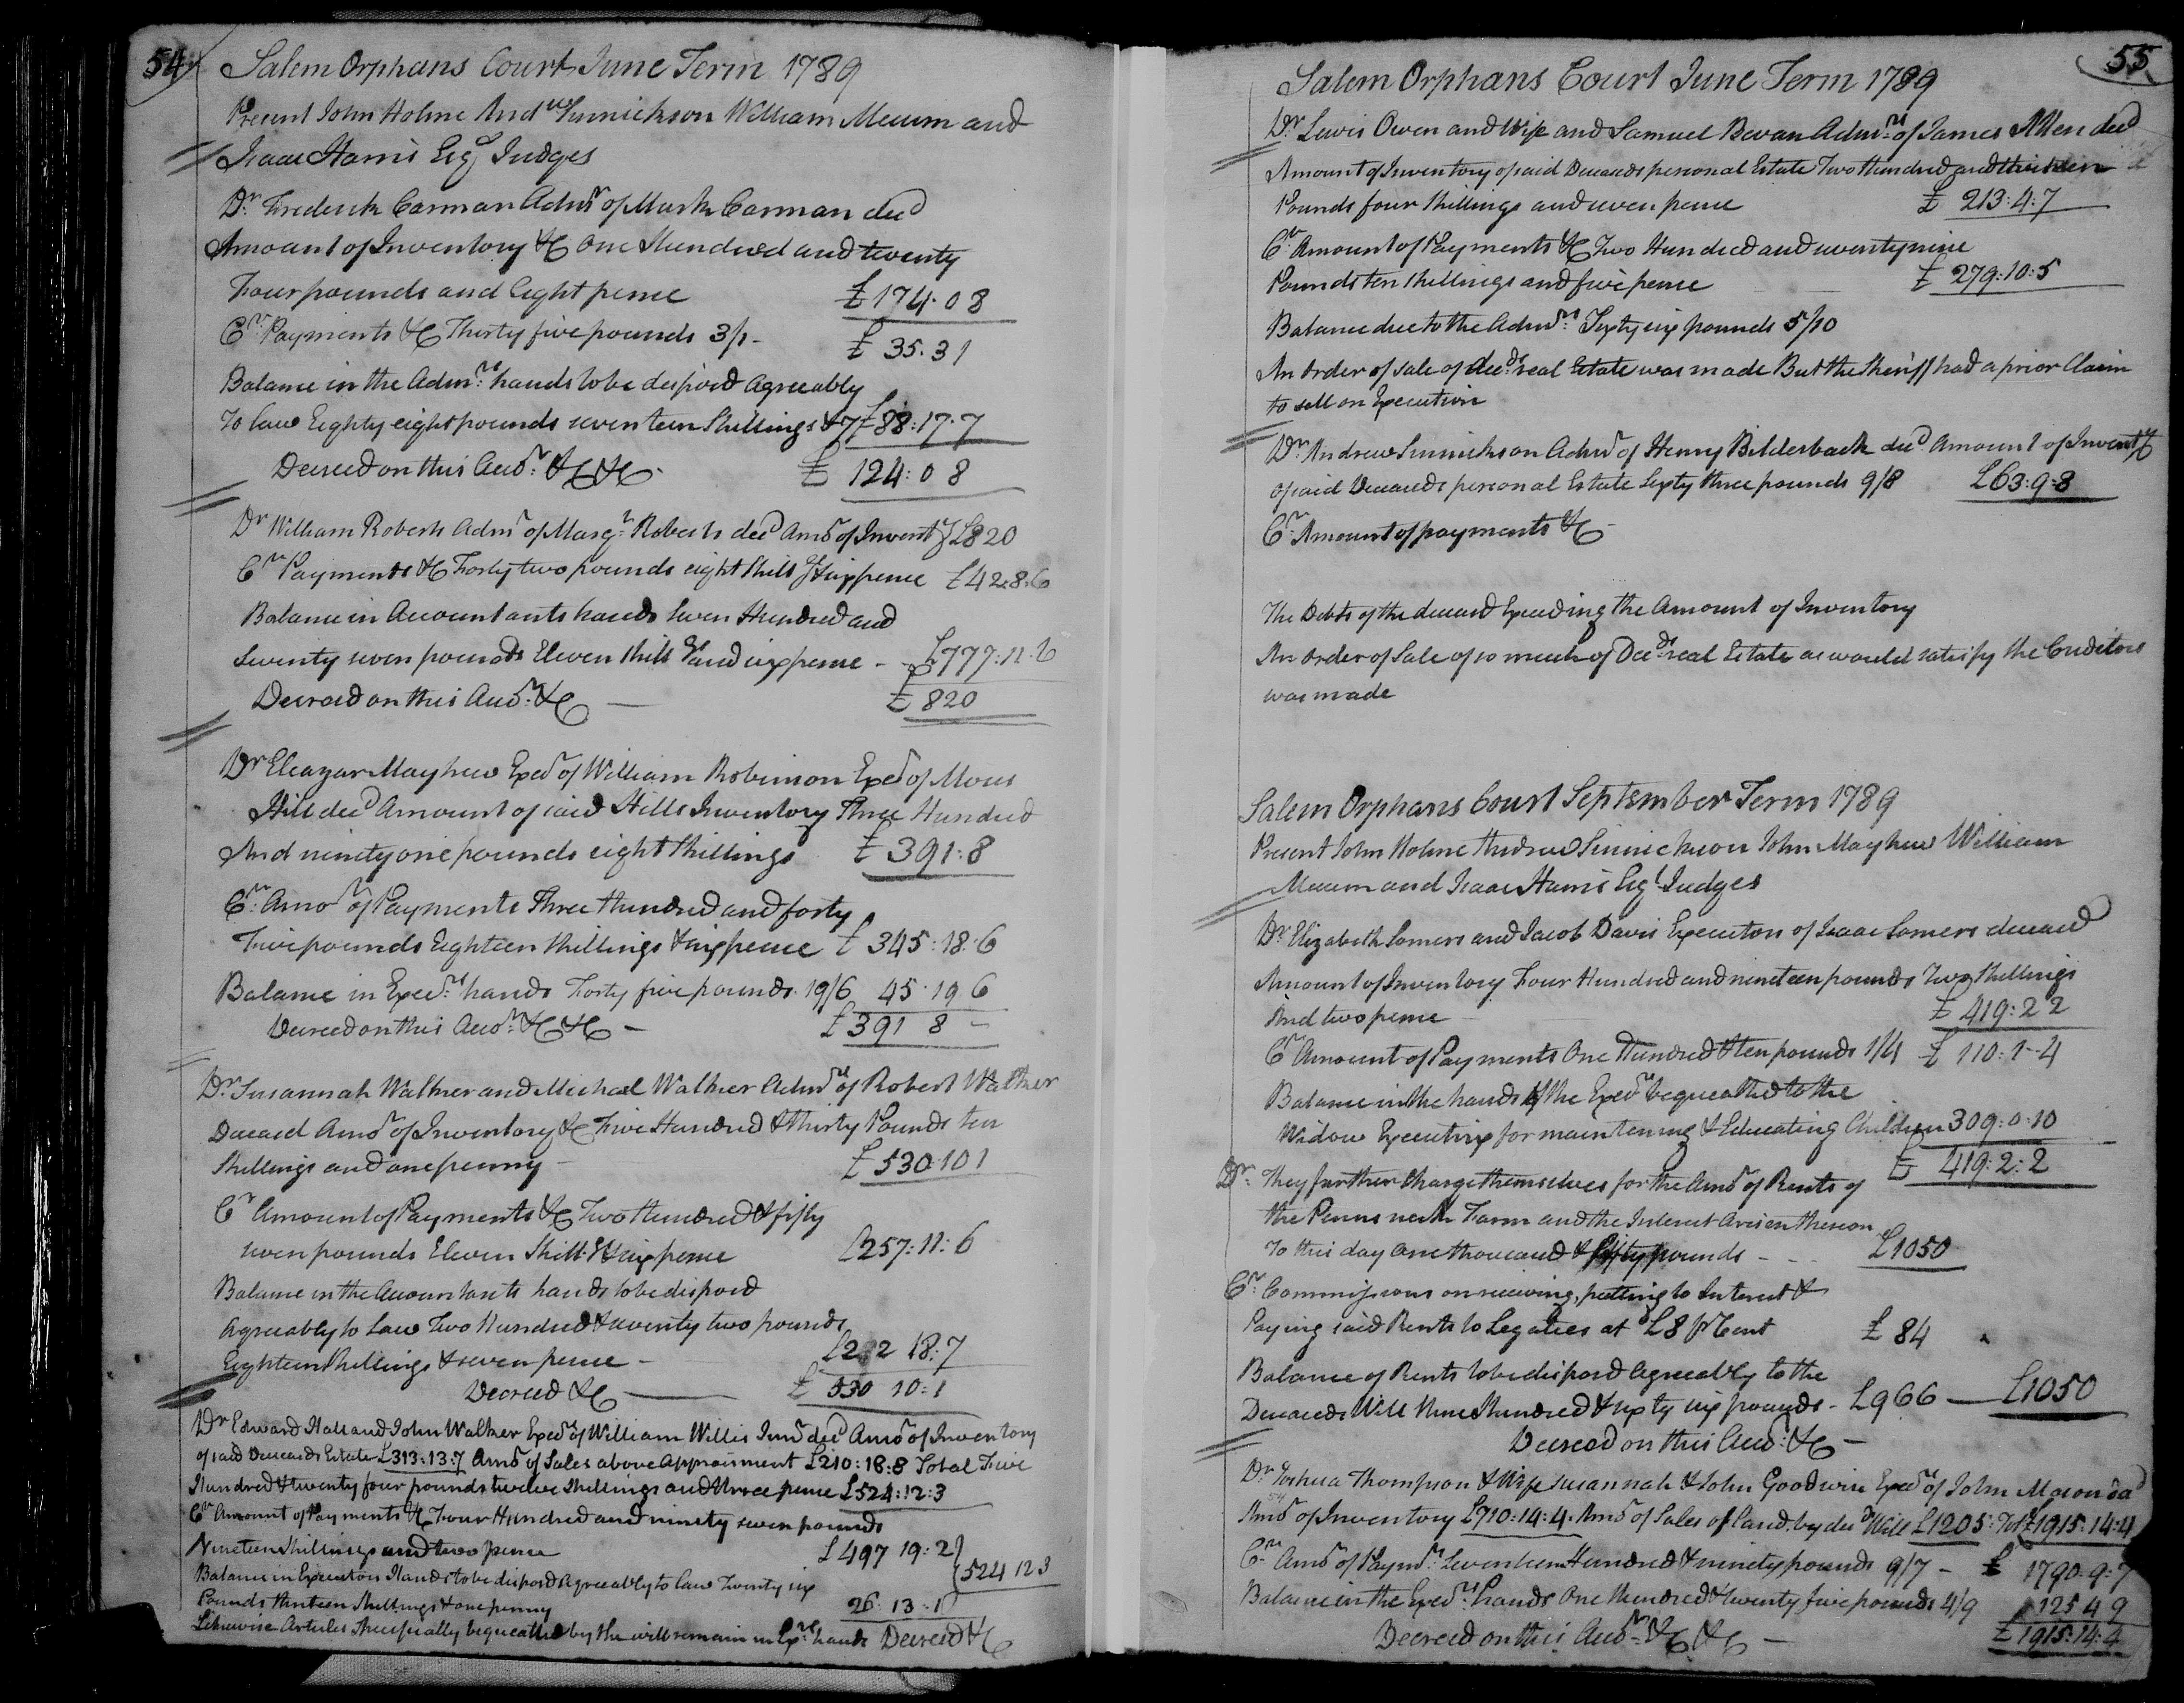 54
Salem Orphans Court June Term 1789
Present John Holme Andw Sinnickson William Mecum and
Isaac Harris Esqr Judges
Dr. Frederick Carman Admr of Mark Carman decd
Amount of Inventory &C One Hundred and twenty
Four pounds and Eight pence £174.0 8
Cr. Payments &C Thirty five pounds 3/1- £ 35.3 1
Balance in the Admrs. hands to be disposd Agreeably
To law Eighty eight pounds seventeen Shillings & 7 £88:17.7
Decreed on this Accot. &C &C £ 124:0 8
Dr William Roberts Admr of Margt. Roberts decd Amot of Inventy £820
Cr Payments &C Forty two pounds eight Shills & Sixpence £42.8.6
Balance in Accountants hands Seven Hundred and
Seventy seven pounds Eleven Shillgs and sixpence - £777:11.6
Decreed on this Accot. &C — £ 820
Dr Eleazar Mayhew Execr of William Robinson Execr of Moses
Hill decd Amount of said Hills Inventory Three Hundred
And ninety one pounds eight Shillings £ 391:8
Cr. Amot of Payments Three Hundred and forty
Five pounds Eighteen Shillings & sixpence £ 345:18.6
Balance in Execrs. hands Forty five pounds. 19/6 45.19 6
Decreed on this Accot. &C &C — £391 8 -
Dr. Susannah Walker and Michael Walker Admrs of Robert Walker
Deceasd Amot of Inventory &C Five Hundred & thirty Pounds ten
Shillings and one penny - £ 530.10 1
Cr Amount of Payments &C Two Hundred & fifty
seven pounds Eleven Shillgs & sixpence £257:11:6
Balance in the Accountants hands to be disposd
Agreeably to Law Two Hundred & seventy two pounds
Eighteen Shillings & seven pence - £2 2 18:7
Decreed &C — £ 530 10:1
Dr Edward Hall and John Walker Execrs of William Willis Junr decd Amot of Inventory
of said Deceaseds Estate £313:13:7 Amot of Sales above Appraisment £210:18:8 Total Five
Hundred & twenty four pounds twelve Shillings and three pence £524:12:3
Cr Amount of Payments &C Four Hundred and ninety seven pounds
Nineteen Shillings and two pence £497 19:2
Balance in Executors Hands to be disposd Agreeably to law Twenty six {524 12 3
Pounds thirteen Shillings & one penny 26. 13. 1
Likewise Articles Specifically bequeathed by the will remain in Exrs. hands Decreed &C
55
Salem Orphans Court June Term 1789
Dr. Lewis Owen and Wife and Samuel Bevan Admrs. of James Allen decd
Amount of Inventory of said Deceaseds personal Estate Two Hundred and thirteen
Pounds four Shillings and seven pence £ 213:4:7
Cr. Amount of Payments &C Two Hundred and seventy nine
Pounds ten Shillings and five pence £ 279:10:5
Balance due to the Admrs. Sixty six pounds 5/10
An Order of sale of decds. real Estate was made But the Sheriff had a prior Claim
to sell on Execution
Dr. Andrew Sinnickson Admr of Henry Bilderback decd Amount of Inventy
of said Deceaseds personal Estate Sixty three pounds 9/8 £63:9:8
Cr. Amount of payments &C
The Debts of the deceasd Exceeding the Amount of Inventory
An order of Sale of so much of Decds. real Estate as would satisfy the Creditors
was made
Salem Orphans Court September Term 1789
Present John Holme Andrew Sinnickson John Mayhew William
Mecum and Isaac Harris Esqr Judges
Dr. Elizabeth Somers and Jacob Davis Executors of Isaac Somers deceasd
Amount of Inventory Four Hundred and nineteen pounds Two Shillings
And two pence £ 419:2 2
Cr Amount of Payments One Hundred & ten pounds 1/4 £ 110:1-4
Balance in the hands of the Execrs bequeathed to the
Widow Executrix for maintaining & Educating Children 309:0:10
£ 419:2:2
Dr. They further Charge themselves for the Amot of Rents of
the Penns neck Farm and the Interest Arisen thereon
To this day One thousand & fifty pounds - £1050
Cr. Commissions on receiving, putting to Interest &
Paying said Rents to Legatees at £8 pr Cent £ 84
Balance of Rents to be disposd Agreeably to the
Deceaseds Will Nine Hundred & sixty six pounds - £966 — £1050
Decreed on this Accot. &C -
Dr Joshua Thompson & Wife Susannah & John Goodwin Execrs of John Mason decd
Amot of Inventory £710:14:4. Amot of Sales of land by decds Will £1205: Totl £1915:14:4
Cr. Amot of Paymts. Seventeen Hundred & ninety pounds 9/7 - £ 1790.9:7
Balance in the Execrs. hands One Hundred & twenty five pounds 4/9 125 4 9
Decreed on this Accot. &C &C — £1915:14:4